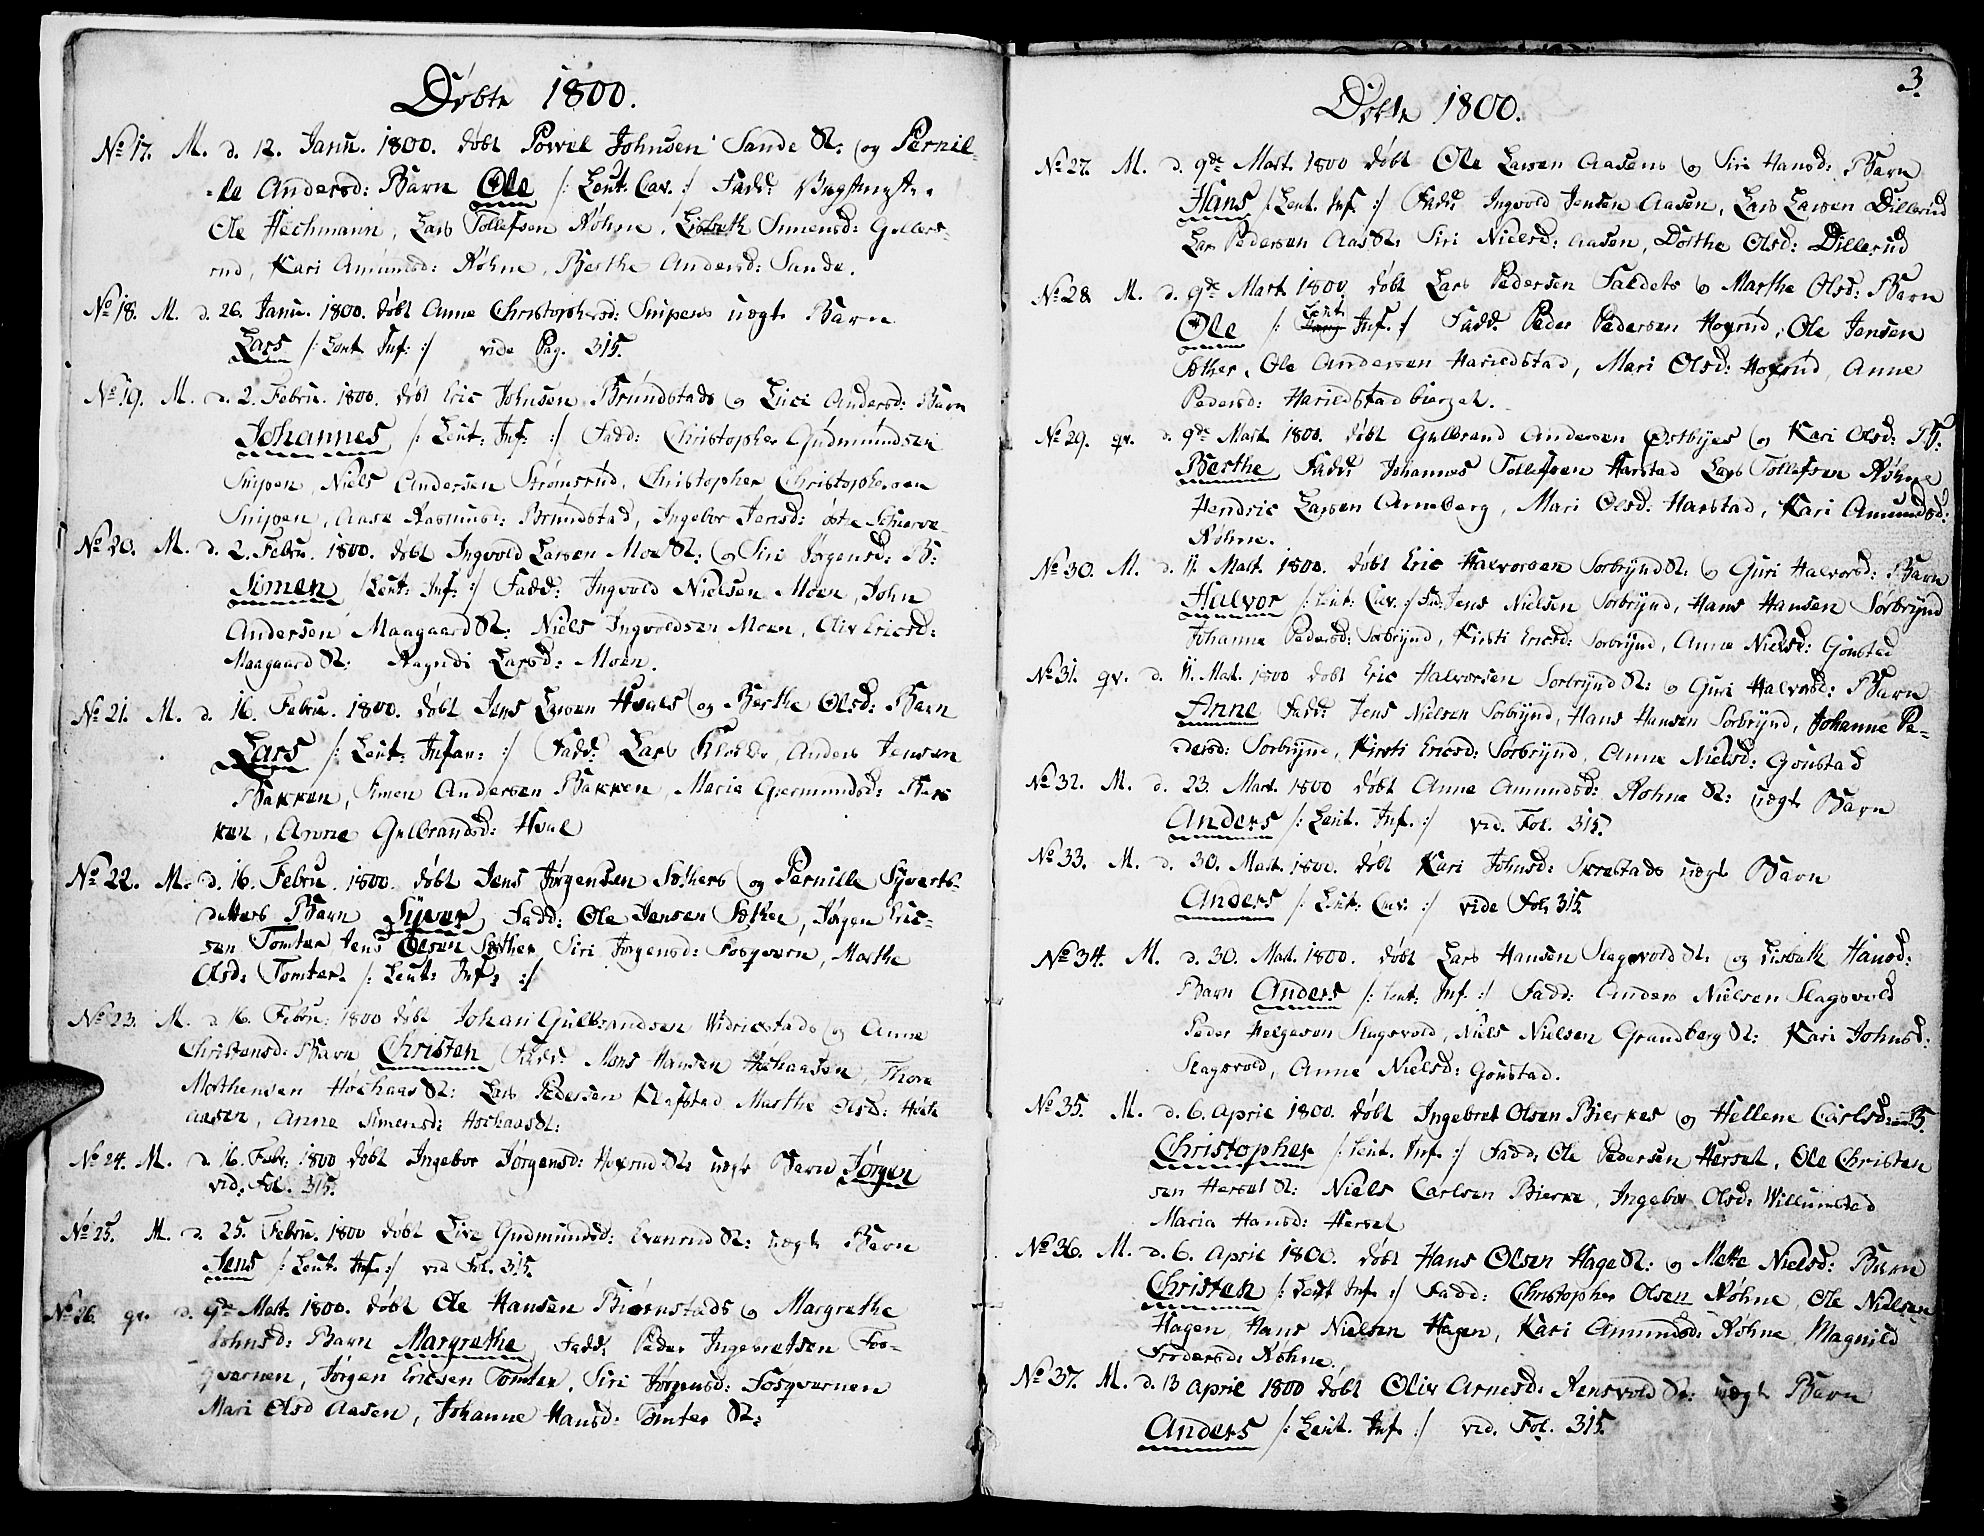 Døbte 1800.
No 17. M. d. 12. Janu. 1800. døbt Powel Johnsen Sande St: og Pernil-
-le Andersd: Barn Ole /: Leut: Cav. :/ Fadd:
Ole Hechmann, Lars Tollefsen Røhne, Lisbeth Simensd: Gullers-
rud, Kari Amundsd: Røhne, Berthe Andersd: Sande.
No 18. M. d. 26. Janu. 1800. døbt Anne Christophersd: Snipens uægte Barn
Lars /: Leut Inf: :/ vide Pag. 315.
No 19. M. d. 2. Febru. 1800. døbt Eric Johnsen Brundstads og Luci Andersd: Barn
Johannes /: Leut: Inf: :/ Fadd: Christopher Gudmundsen
Snipen, Niels Andersen Strømsrud, Christopher Christophersen
Snipen, Aase Rasmusd: Brundstad, Ingebor Jensd: øste
No 20. M. d. 2. Febru. 1800. døbt Ingvold Larsen Moe St: og Siri Jørgensd: B:
Simen /: Leut: Inf: :/ Fadd: Ingvold Nielsen Moen, John
Andersen Maagaard St: Niels Ingvoldsen Moen, Oliv Ericsd:
Maagaard St: Ragndi Larsd: Moen.
No 21. M. d. 16. Febru. 1800. døbt Jens Larsen Hvals og Berthe Olsd: Barn
Lars /: Leut: Infan: :/ Fadd: Lars Anders Jensen
Bakken, Simen Andersen Bakken, Maria Giermundsd: Bak
ken, Anne Gulbrandsd: Hval
No 22. M. d. 16. Febru. 1800. døbt Jens Jørgensen Sæthers og Pernille Syverts-
datters Barn Syver, Fadd: Ole Jensen Sæther, Jørgen Eric-
sen Tomter Jens Olsen Sæther Siri Jørgensd: Fosqvern, Marthe
Olsd: Tomter. /: Leut: Inf: :/
No 23. M. d. 16. Febru: 1800 døbt Johan Gulbrandsen Widricstads og Anne
Christensd: Barn Christen Fadd: Mons Hansen Høchaasen, Thore
Mathensen Høchaas St: Lars Pedersen Klafstad Marthe Olsd: Høch
aasen, Anne Simensd: Høchaas St:
No 24. M. d. 16. Febr: 1800 døbt Ingebor Jørgensd: Hoxrud St: uægte Barn Jørgen
vid. Fol. 315.
No 25. M. d. 25. Febru. 1800 døbt Live Gudmundsd: Evenrud St: uægte Barn
Jens /: Leut. Inf. :/ vid Fol. 315.
No 26. qv. d. 9de Mart. 1800. døbt Ole Hansen Biørnstads og Margrethe
Johnsd: Barn Margrethe, Fadd: Peder Ingebretsen Fos-
qvernen, Jørgen Ericsen Tomter, Siri Jørgensd: Fosqvernen
Mari Olsd Aasen, Johanne Hansd: Tomter St:
3.
Døbte 1800.
No 27. M. d. 9de Mart. 1800 døbt Ole Larsen Aasens og Siri Hansd: Barn
Hans /: Leut. Inf. :/ Fadd: Ingvold Jensen Aasen, Lars Larsen Dillerud
Lars Pedersen Aas St: Siri Nielsd: Aasen, Dorthe Olsd: Dillerud
No 28. M. d. 9de Mart. 1800 døbt Lars Pedersen Faldets og Marthe Olsd: Barn
Leut
Ole /: Inf. :/ Fadd: Peder Pedersen Hoxrud, Ole Jensen
Sæther, Ole Andersen Harildstad, Mari Olsd: Hoxrud, Anne
Pedersd: Harildstadbierget.
No 29. qv. d. 9de Mart. 1800. døbt Gulbrand Andersen Østbyes og Kari Olsd: B:
Berthe Fadd: Johannes Tollefsen Harstad Lars Tollefsen Røhne
Hendric Larsen Anneberg, Mari Olsd: Harstad, Kari Amundsd:
Røhne.
No 30. M. d. 11. Mart. 1800. døbt Eric Halvorsen Sorbrynd St: og Guri Halvorsd: Barn
Halvor /: Leut: Cav. :/ Fad. Jens Nielsen Sorbrynd, Hans Hansen Sorbrynd
Johanne Pedersd: Sorbrynd, Kirsti Ericsd: Sorbrynd, Anne Nielsd: Gonstad
No 31. qv. d. 11. Mart. 1800 døbt Eric Halvorsen Sorbrynd St: og Guri Halvorsd: Barn
Anne Fadd: Jens Nielsen Sorbrynd, Hans Hansen Sorbrynd, Johanne Pe-
dersd: Sorbryne, Kirsti Ericsd: Sorbrynd, Anne Nielsd: Gonstad
No 32. M. d. 23. Mart. 1800 døbt Anne Amundsd: Røhne St: uægte Barn
Anders /: Leut. Inf. :/ vid. Fol. 315.
No 33. M. d. 30. Mart. 1800. døbt Kari Johnsd: Skrestads uægte Barn
Anders /: Leut: Cav. :/ vide Fol. 315.
No 34. M. d. 30. Mart. 1800. døbt Lars Hansen Slagsvold St: og Lisbeth Hansd:
Barn Anders /: Leut: Inf. :/ Fadd: Anders Nielsen Slagsvold
Peder Helgesen Slagsvold, Niels Nielsen Grandberg St: Kari Johnsd:
Slagsvold, Anne Nielsd: Gonstad.
No 35. M. d. 6. April 1800. døbt Ingebret Olsen Bierkes og Hellene Carlsd: B.
Christopher /: Leut. Inf. :/ Fadd: Ole Pedersen Hersel, Ole Christen
sen Hersel St: Niels Carlsen Bierke, Ingebor Olsd: Willumstad
Maria Hansd: Hersel
No 36. M. d. 6. April 1800. døbt Hans Olsen Hage St: og Mette Nielsd: Barn
Christen /: Leut Inf. :/ Fadd: Christopher Olsen Røhne, Ole Nielsen
Hagen, Hans Nielsen Hagen, Kari Amundsd: Røhne, Magnild
Frederdd: Røhne.
No 37. M. d. 13 April 1800 døbt Oliv Arnesd: Aensvold St: uægte Barn
Anders /: Leut. Inf. :/ vid. Fol. 315.